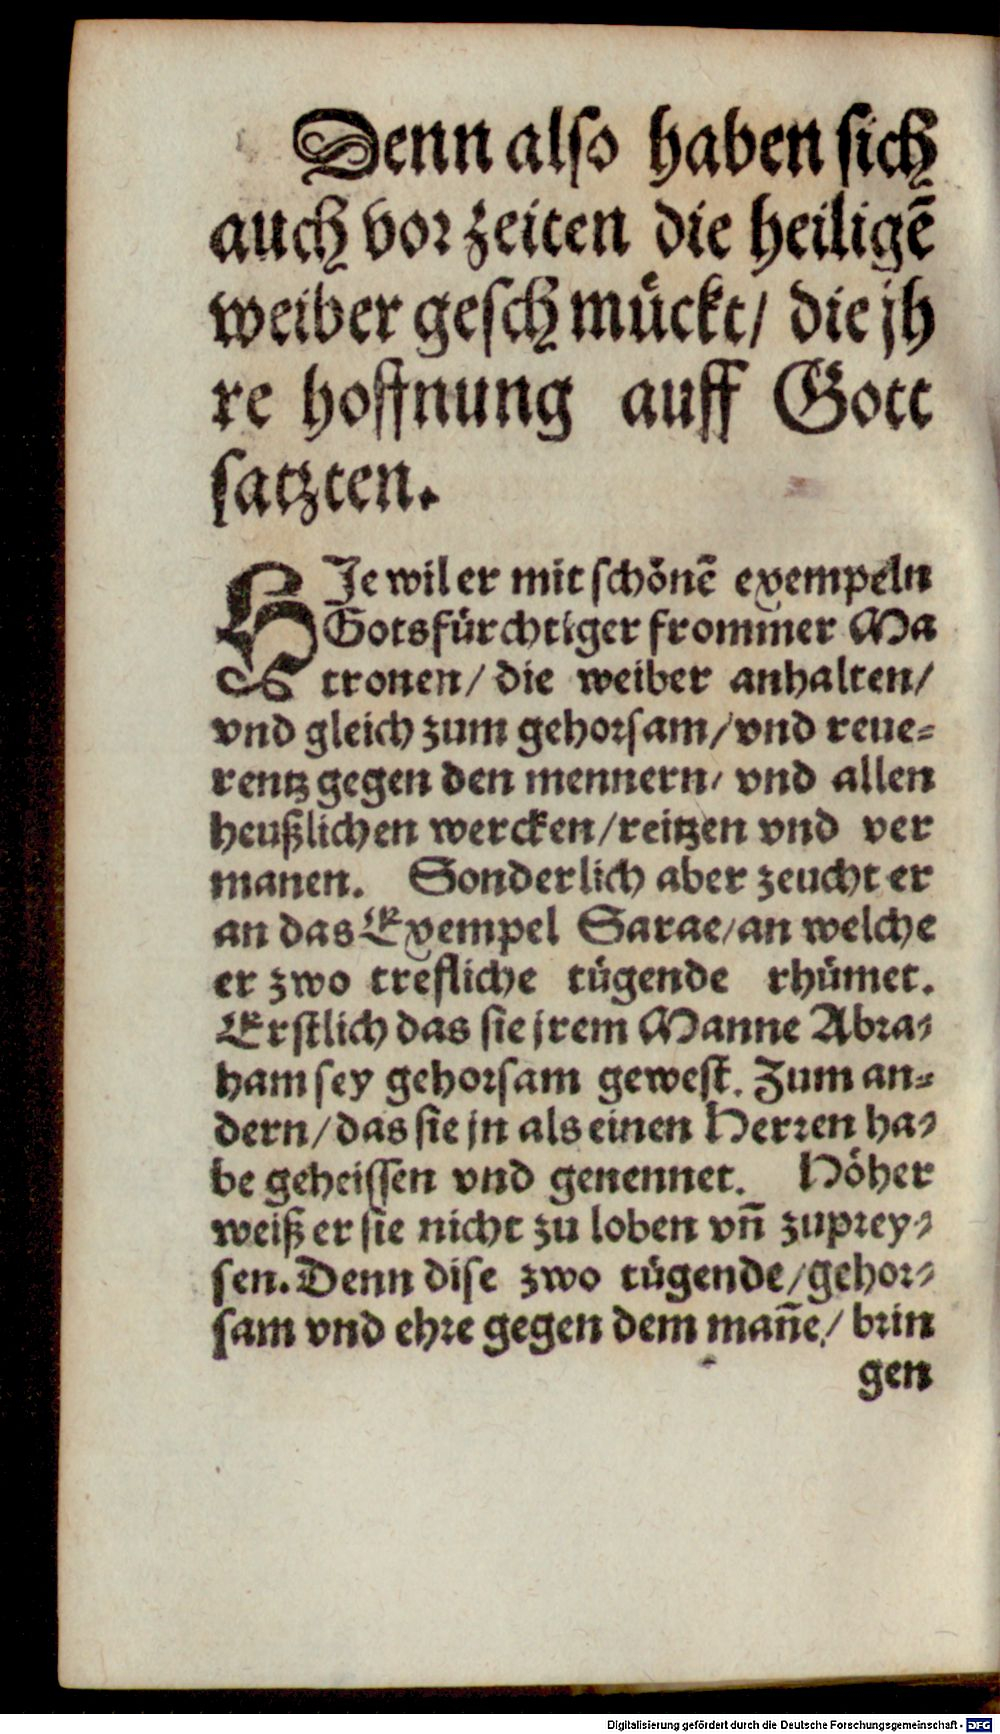 Denn also haben sich
auch vor zeiten die heiligē
weiber geschmückt/ die jh
re hoffnung auff Gott
satzten.
HIe wil er mit schönē exempeln
Gotsfürchtiger frommer Ma
tronen/ die weiber anhalten/
vnd gleich zum gehorsam/ vnd reue=
rentz gegen den mennern/ vnd allen
heußlichen wercken/ reitzen vnd ver
manen. Sonderlich aber zeucht er
an das Exempel Sarae/ an welche
er zwo trefliche tügende rhümet.
Erstlich das sie jrem Manne Abra=
ham sey gehorsam gewest. Zum an=
dern/ das sie jn als einen Herren ha=
be geheissen vnd genennet. Höher
weiß er sie nicht zu loben vn̄ zuprey=
sen. Denn dise zwo tügende/ gehor=
sam vnd ehre gegen dem man̄e/ brin
gen
Digitalisierung gefördert durch die Deutsche Forschungsgemeinschaft - DFG